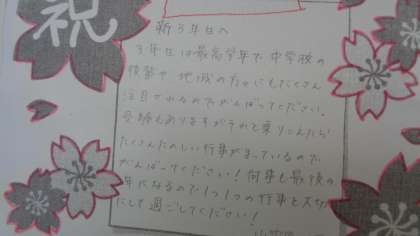 祝
新3年生へ
3年生は最高学年で中学校の
後輩や地域の方々にもたくさん
注目されるのでがんばってください。
受験もありますがそれを乗りこえたら
たくさんたのしい行事がまっているので
がんばってください!何事も最後の
年になるので1つ1つの行事を大切
にして過ごしてください!